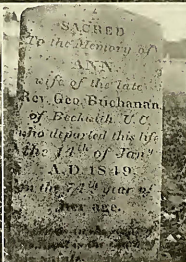 SACRED
To the Memory of
ANN.
wife of the late
Rev. Geo. Buchanan
of Beckwith, U.C.
who departed this life
the 14th of Jany
A.D. 1849
in the 74th year of
her age.